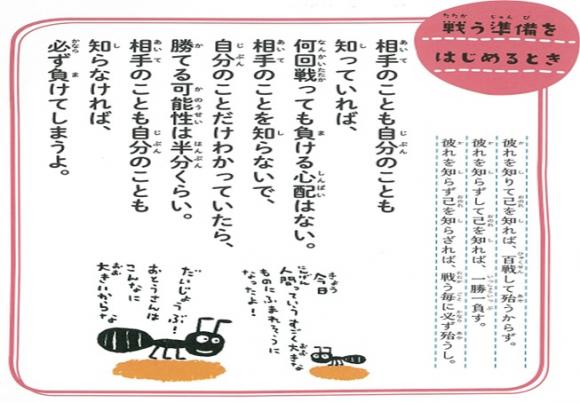 戦う準備を
はじめるとき
彼れを知りて己を知れば、百戦して殆うからず。
彼れを知らずして己を知れば、一勝一負す。
彼れを知らず己を知らざれば、戦う毎に必ず殆うし。
相手のことも自分のことも
知っていれば、
何回戦っても負ける心配はない。
相手のことを知らないで、
自分のことだけわかっていたら、
勝てる可能性は半分くらい。
相手のことも自分のことも
知らなければ、
必ず負けてしまうよ。
今日
人間っていうすごく大きな
ものにふまれそうに
なったよ!
だいじょうぶ!
おとうさんは
こんなに
大きいからな